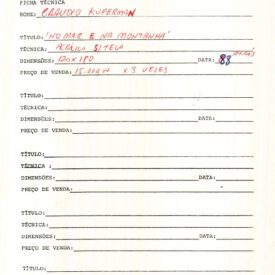 FICHA TÉCNICA
NOME: CLAUDIO KUPERMAN
TÍTULO: 'NO MAR E NA MONTANHA'
TÉCNICA: ACRÍLICA S/TELA
DIMENSÕES: 120X180 DATA: 88
PREÇO DE VENDA: X 3 VEZES
TÍTULO:
TÉCNICA:
DIMENSÕES: DATA:
PREÇO DE VENDA:
TÍTULO:
TÉCNICA :
DIMENSÕES: DATA:
PREÇO DE VENDA:
TÍTULO:
TÉCNICA:
DIMENSÕES: DATA:
PREÇO DE VENDA:
TÍTULO: